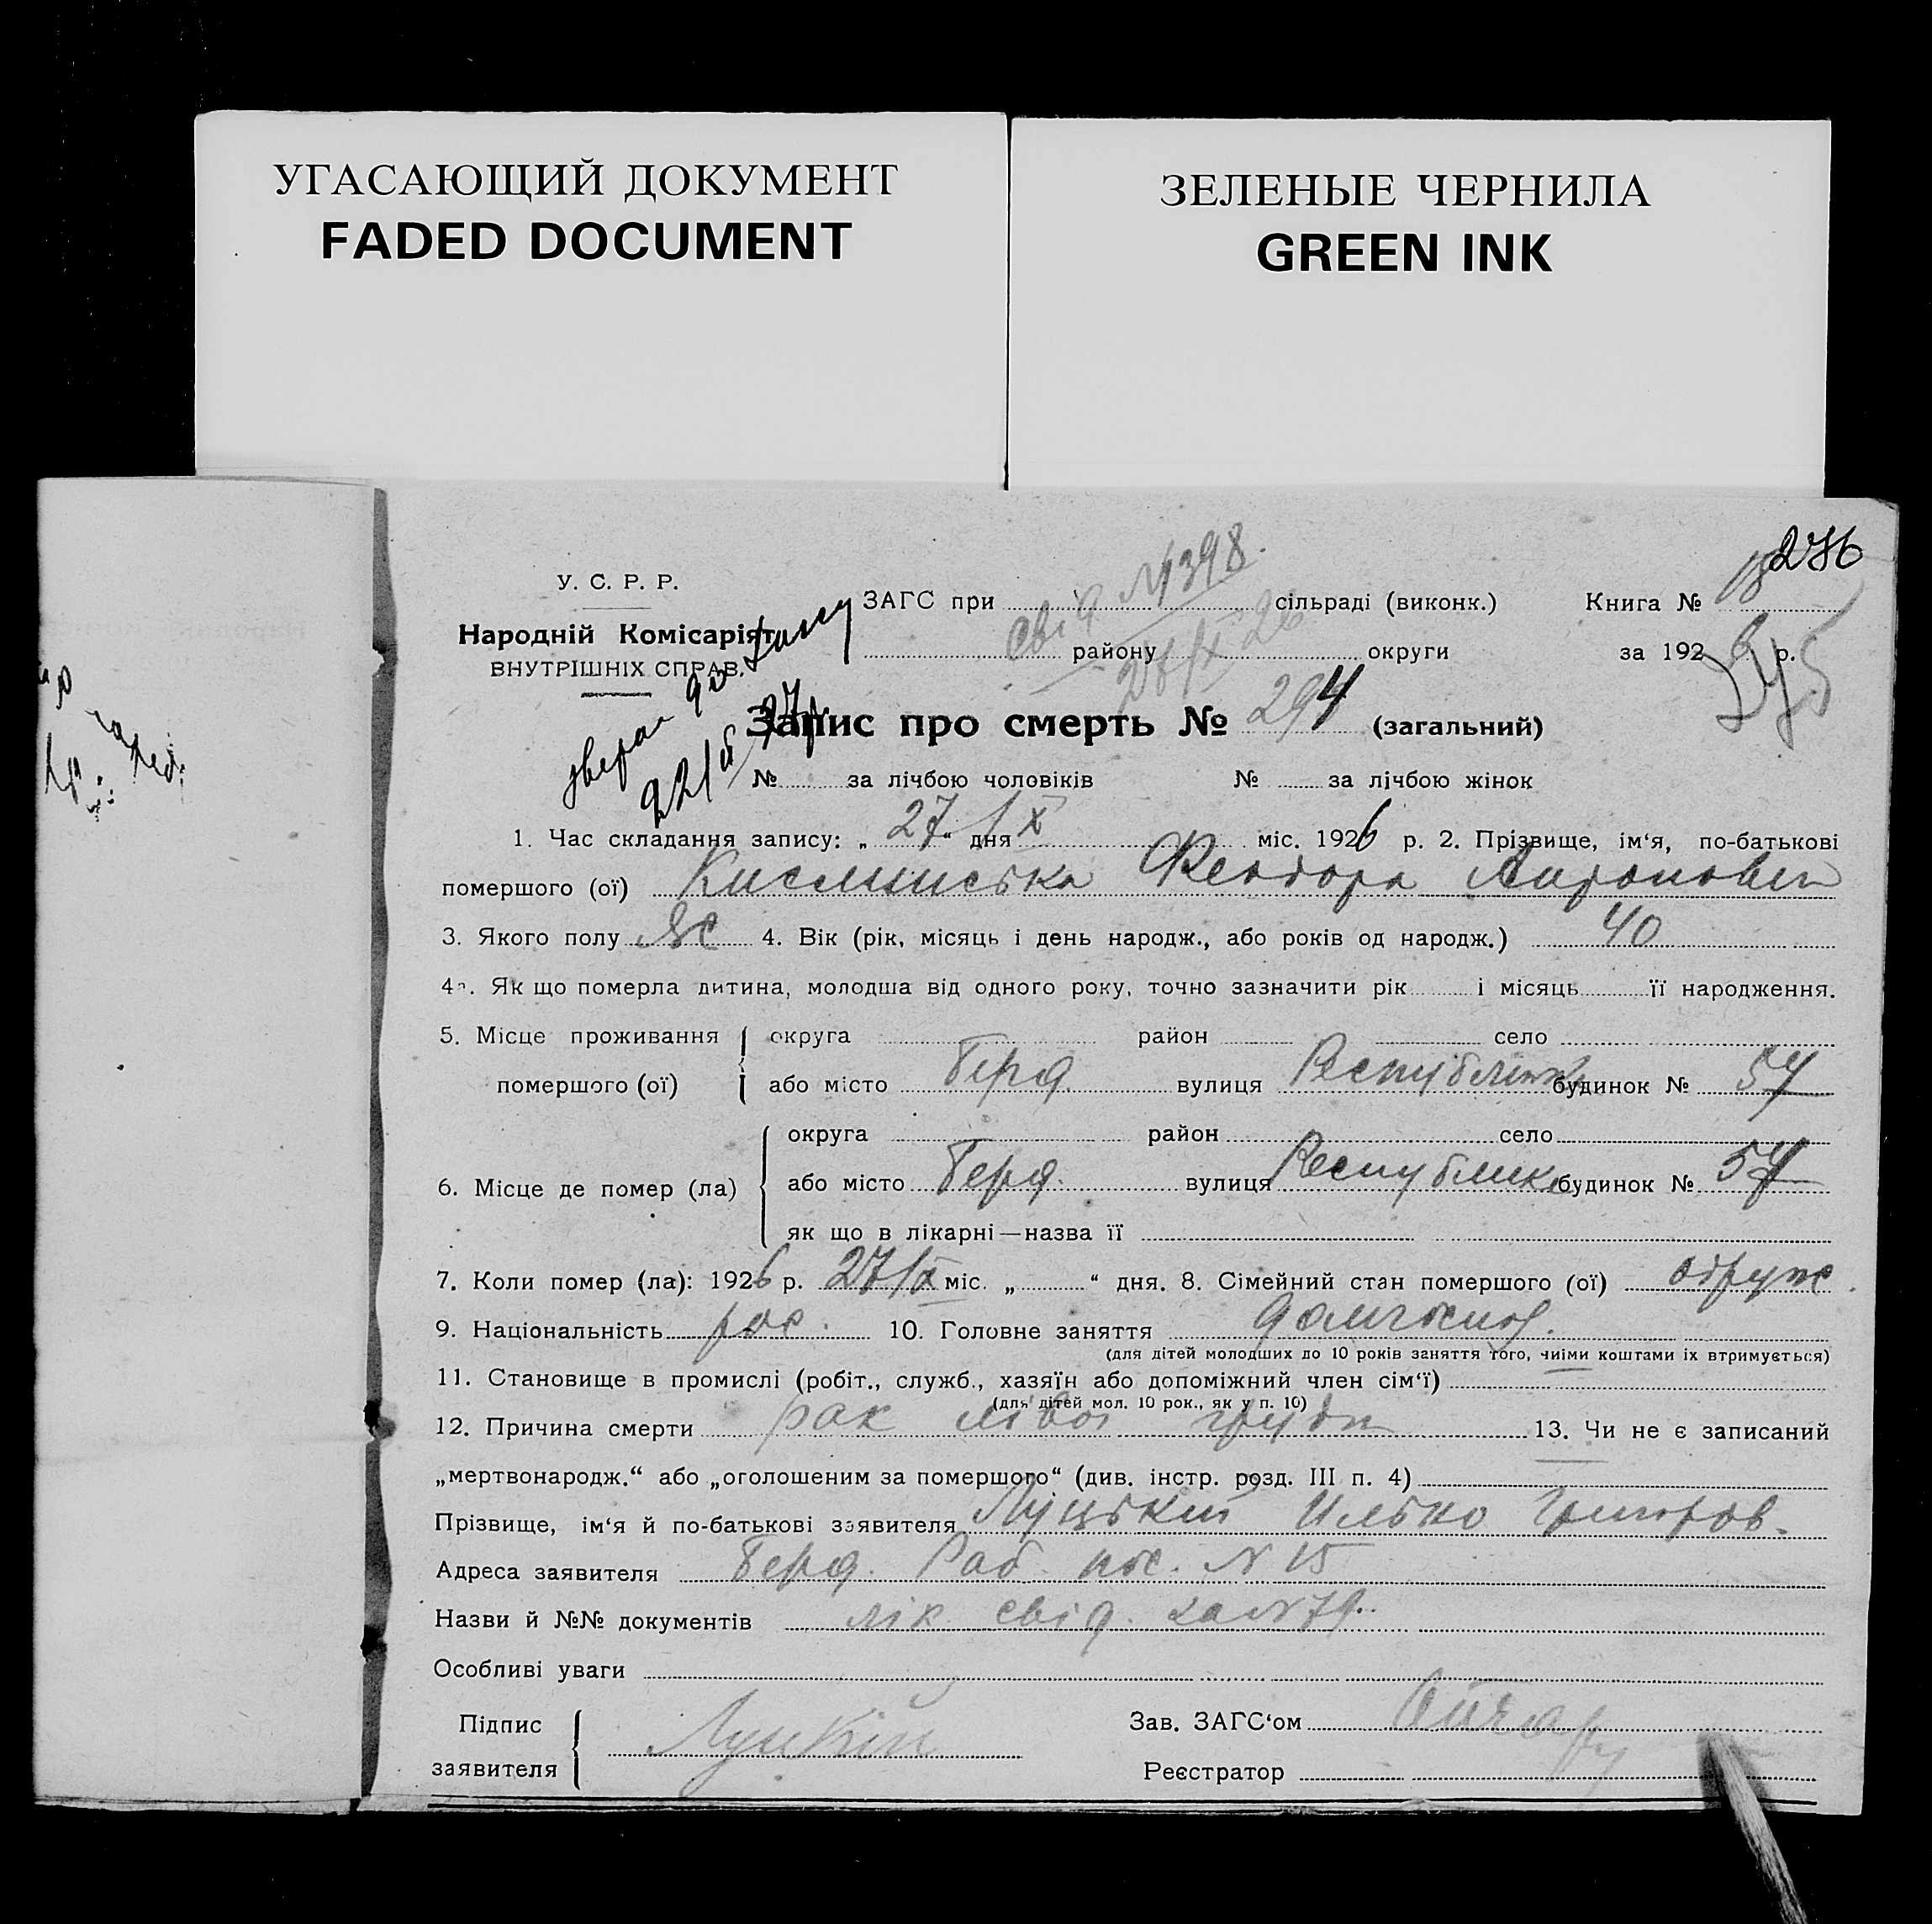 УГАСАЮЩИЙ ДОКУМЕНТ
FADED DOCUMENT
ЗЕЛЕНЫЕ ЧЕРНИЛА
GREEN INK
276
У. С. Р. Р.
Народній Комісаріят
ВНУТРІШНІХ СПРАВ.
ЗАГС при сільраді (виконк.)
свід №1398.
27/IX 26
району округи
Книга № 18
за 1926 р.
Запис про смерть № 294 (загальний)
№ за лічбою чоловіків № за лічбою жінок
1. Час складання запису: „27“ дня IX міс. 1926 р. 2. Прізвище, ім‘я, по-батькові
помершого (ої) Феодора
3. Якого полу жс 4. Вік (рік, місяць і день народж., або років од народж.) 40
4а. Як що померла дитина, молодша від одного року, точно зазначити рік і місяць її народження.
5. Місце проживання помершого (ої) округа район село
або місто Берд. вулиця Республіки будинок № 57
6. Місце де помер (ла) округа район село
або місто Берд. вулиця Республики будинок № 57
як що в лікарні—назва її
7. Коли помер (ла): 1926 р. 27/IX міс. „ “ дня. 8. Сімейний стан помершого (ої) одруж
9. Національність рос. 10. Головне заняття домгоспод.
(для дітей молодших до 10 років заняття того, чиїми коштами їх втримується)
11. Становище в промислі (робіт., служб., хазяїн або допоміжний член сім‘ї)
(для дітей мол. 10 рок., як у п. 10)
12. Причина смерти рак лівої груди 13. Чи не є записаний
„мертвонародж.“ або „оголошеним за помершого“ (див. інстр. розд. III п. 4)
Прізвище, ім‘я й по-батькові заявителя Луцький Илько Григоров.
Адреса заявителя Берд. Раб. пос. N 15
Назви й №№ документів лік. свід. за N 79.
Особливі уваги
Підпис заявителя Луцкій
Зав. ЗАГС‘ом
Реєстратор